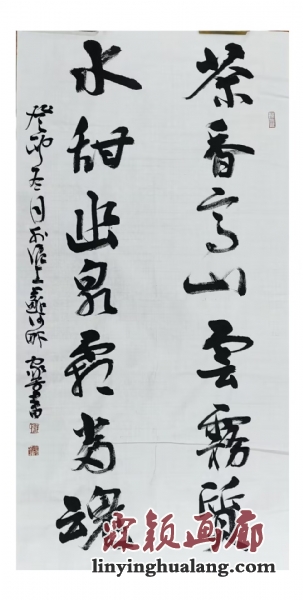 茶香高山雲霧質
水甜幽泉霜當魂
癸卯冬月
颖画廊
linyinghualang.com